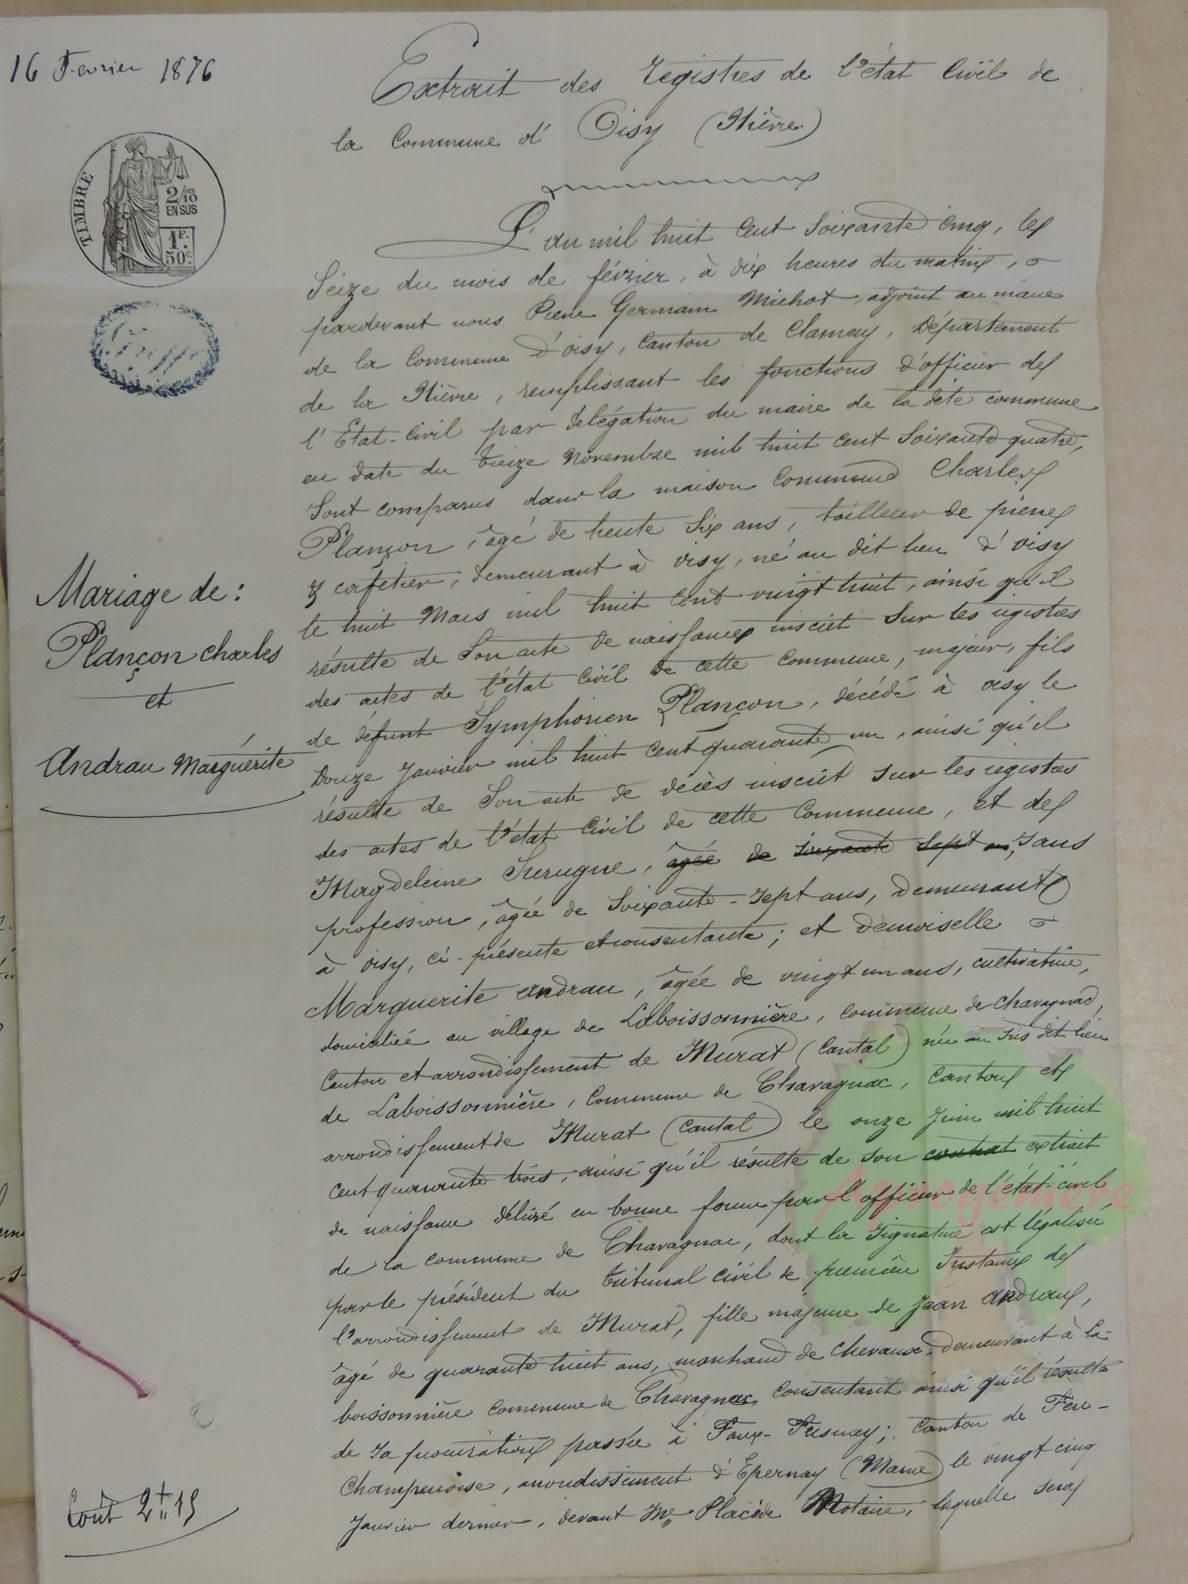 16 Fevrier 1876
Extrait des registres de l'état Civil de
la Commune d' Oisy (Nièvre)
TIMBRE
2/10
EN SUS
1F.
50c.
L'an mil huit cent soixante cinq, le
seize du mois de février, à dix heures du matin,
pardevant nous Pierre Germain Michot, adjoint au maire
de la Commune d'oisy, Canton de Clamecy, Département
de la Nièvre, remplissant les fonctions d'officier de
l'Etat-Civil par délégation du maire de la dite commune
en date du treize Novembre mil huit cent soixante quatre,
sont comparus dans la maison Commune Charles
Plançon, âgé de trente six ans, tailleur de pierre
& cafetier, demeurant à oisy, né au dit lieu d'oisy
le huit Mars mil huit cent vingt huit, ainsi qu'il
résulte de son acte de naissance inscrit sur les registres
des actes de l'état Civil de cette Commune, majeur, fils
de défunt Symphorien Plançon, décédé à oisy le
douze Janvier mil huit cent quarante un, ainsi qu'il
résulte de son acte de décès inscrit sur les registres
des actes de l'état Civil de cette Commune, et de
Magdeleine Surugue, âgée de soixante sept ans, sans
profession, âgée de soixante-sept ans, demeurant
à oisy, ci-présente et consentante; et demoiselle
Marguerite Andrau, âgée de vingt un ans, cultivatrice,
domiciliée au village de Laboissonnière, commune de Chavagnac,
Canton et arrondissement de Murat (Cantal) née au sus dit lieu
de Laboissonnière, Commune de Chavagnac, Canton et
arrondissement de Murat (Cantal) le onze Juin mil huit
cent quarante trois, ainsi qu'il résulte de son contrat extrait
de naissance délivré en bonne forme par l'officier de l'état civil
de la commune de Chavagnac, dont la signature est légalisée
par le président du tribunal civil de première Instance de
l'arrondissement de Murat, fille majeure de Jean Andraud,
âgé de quarante huit ans, marchand de chevaux, demeurant à La-
boissonnière Commune de Chavagnac, consentant ainsi qu'il résulte
de sa procuration passée à Faux-Fresnay; Canton de Fère-
Champenoise, arrondissement d'Epernay (Marne) le vingt cinq
Janvier dernier, devant Me Placide Notaire, laquelle sera
Mariage de:
Plançon charles
et
Andrau Marguérite
Coût 2f"15